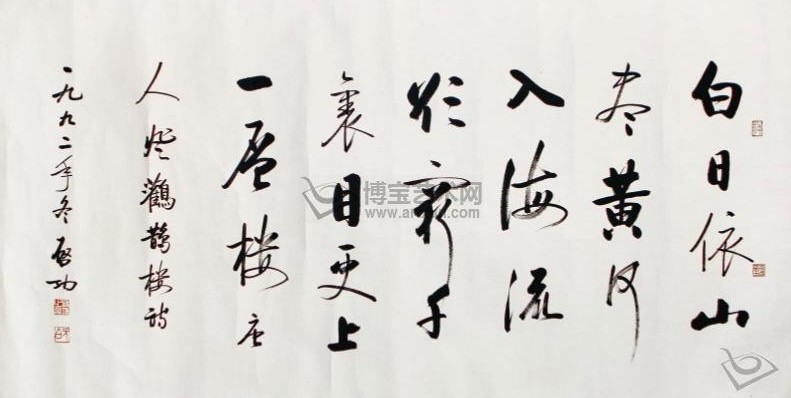 白日依山
尽黄河
入海流
欲窮千
裏目更上
一层楼 唐
人登鸛鵲楼诗
一九九二年冬 启功
博宝艺术网